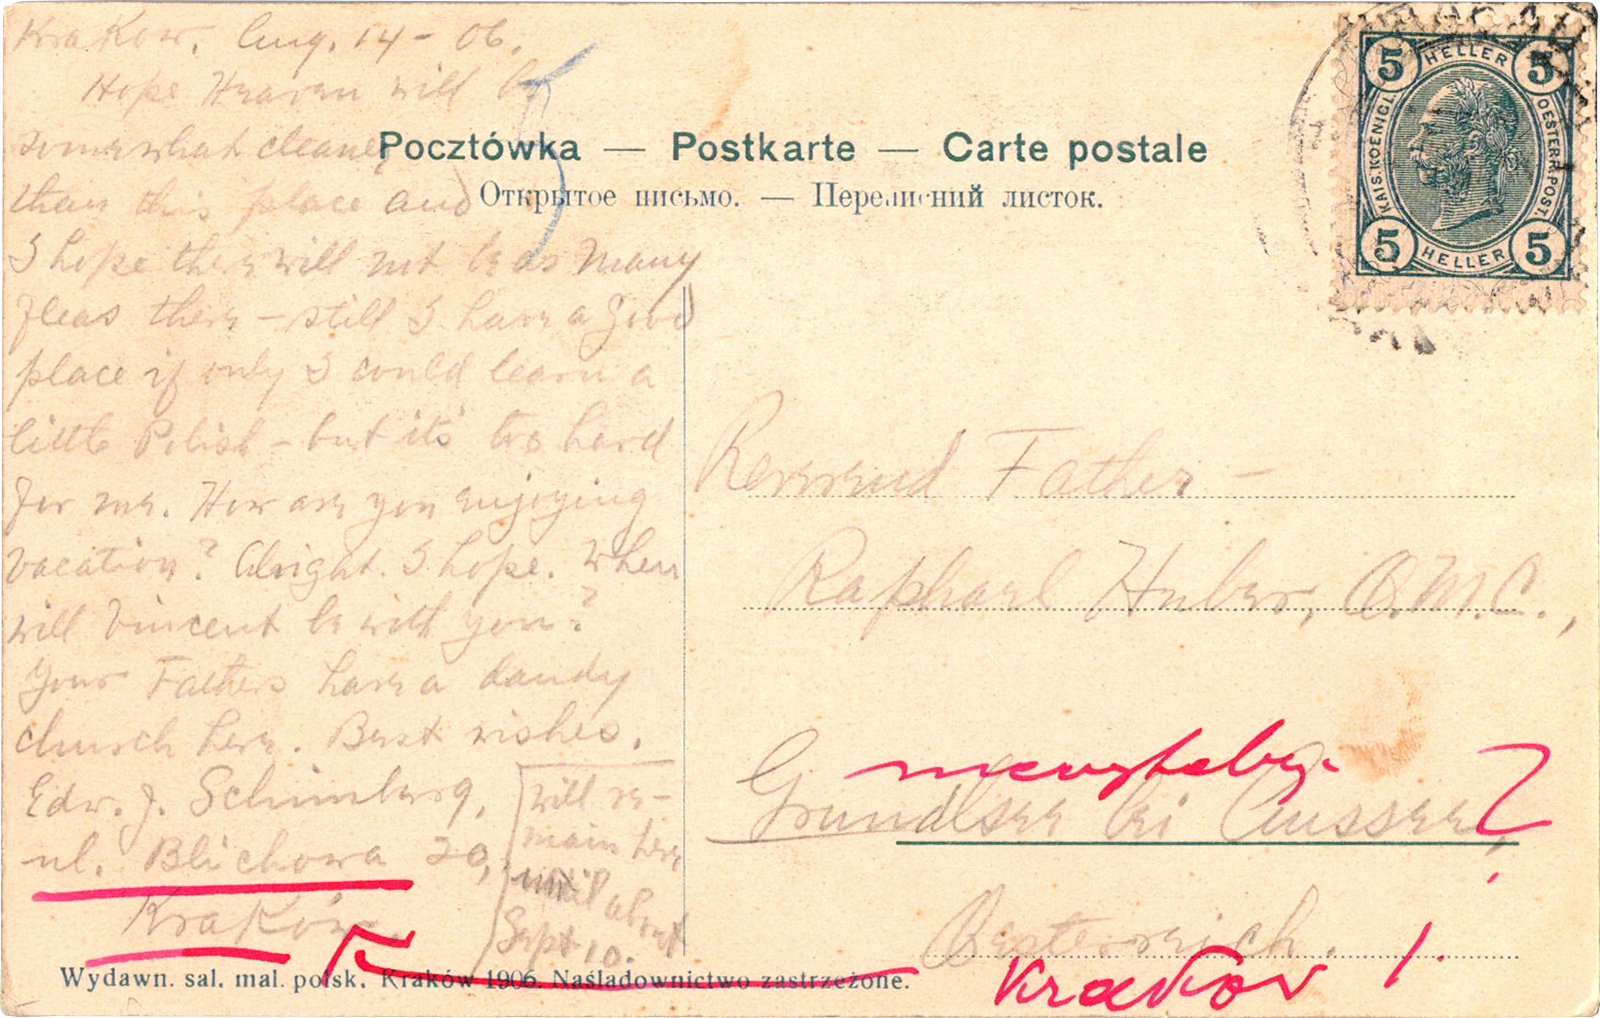 Krakow, Aug. 14 - 06.
Hope Heaven will be
somewhat cleaner
than this place and
I hope there will not be as many
fleas there - still I have a good
place if only I could learn a
little Polish - but it's too hard
for me. How are you enjoying
vacation? Alright I hope. When
will Vincent be with you?
Your Fathers have a dandy
church here. Best wishes,
Edw. J. Schimberg,
ul. Blichowa 20,
Kraków.
will re-
main here
until about
Sept 10.
Pocztówka — Postkarte — Carte postale
Открытое письмо. — Переписний листок.
5 HELLER 5
KAIS. KOENIGL.
OESTERR. POST.
5 HELLER 5
Reverend Father -
Raphael Huber, O.M.C.,
Grundlsee bei Aussee,
Oesterreich.
Krakov 1.
Wydawn. sal. mal. polsk. Kraków 1906. Naśladownictwo zastrzeżone.